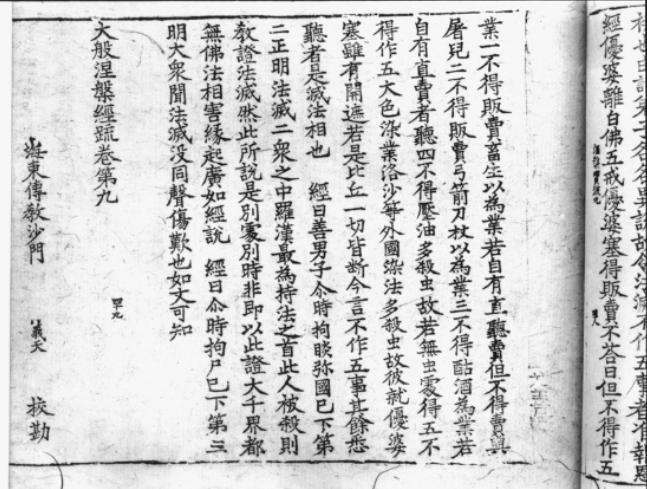 經優婆離白佛五戒優婆塞得販賣不荅曰但不得作五
業一不得販賣畜生以為業若自有直聽賣但不得賣與
屠兒二不得販賣弓箭刀杖以為業三不得酤酒為業若
自有直賣者聽四不得壓油多殺虫故若無虫處得五不
得作五大色染業洛沙等外國染法多殺虫故彼就優婆
塞雖有開遮若是比丘一切皆断今言不作五事其餘悉
聽者是滅法相也 經曰善男子尒時拘睒弥國已下第
二正明法滅二衆之中羅漢㝡為持法之首此人被殺則
教證法滅然此所說是別處別時非即以此證大千界都
無佛法相害緣起廣如經說 經曰尒時拘尸已下第三
明大衆聞法滅沒同聲傷歎也如文可知
大般涅槃經䟽卷第九
四九
海東傳教沙門 義天 挍勘